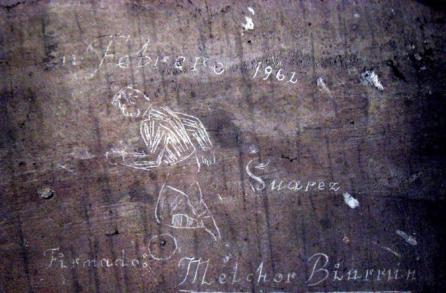 Febrero 1962
Suarez
Firmado:
Melchor Biurrun